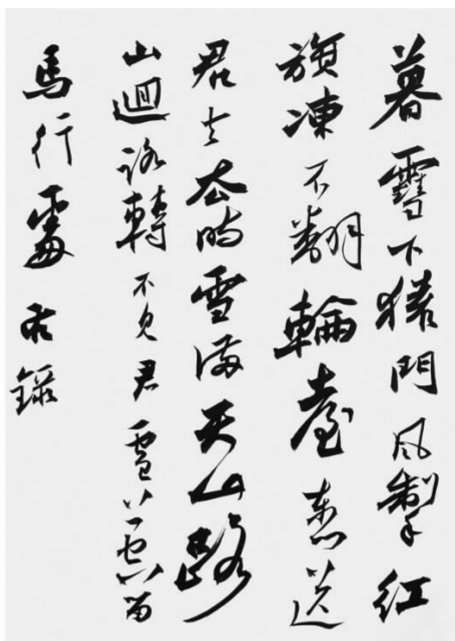 暮雪下轅門風掣紅
旗凍不翻輪臺東門送
君去去時雪滿天山路
山迴路轉不見君雪上空留
馬行處右錄